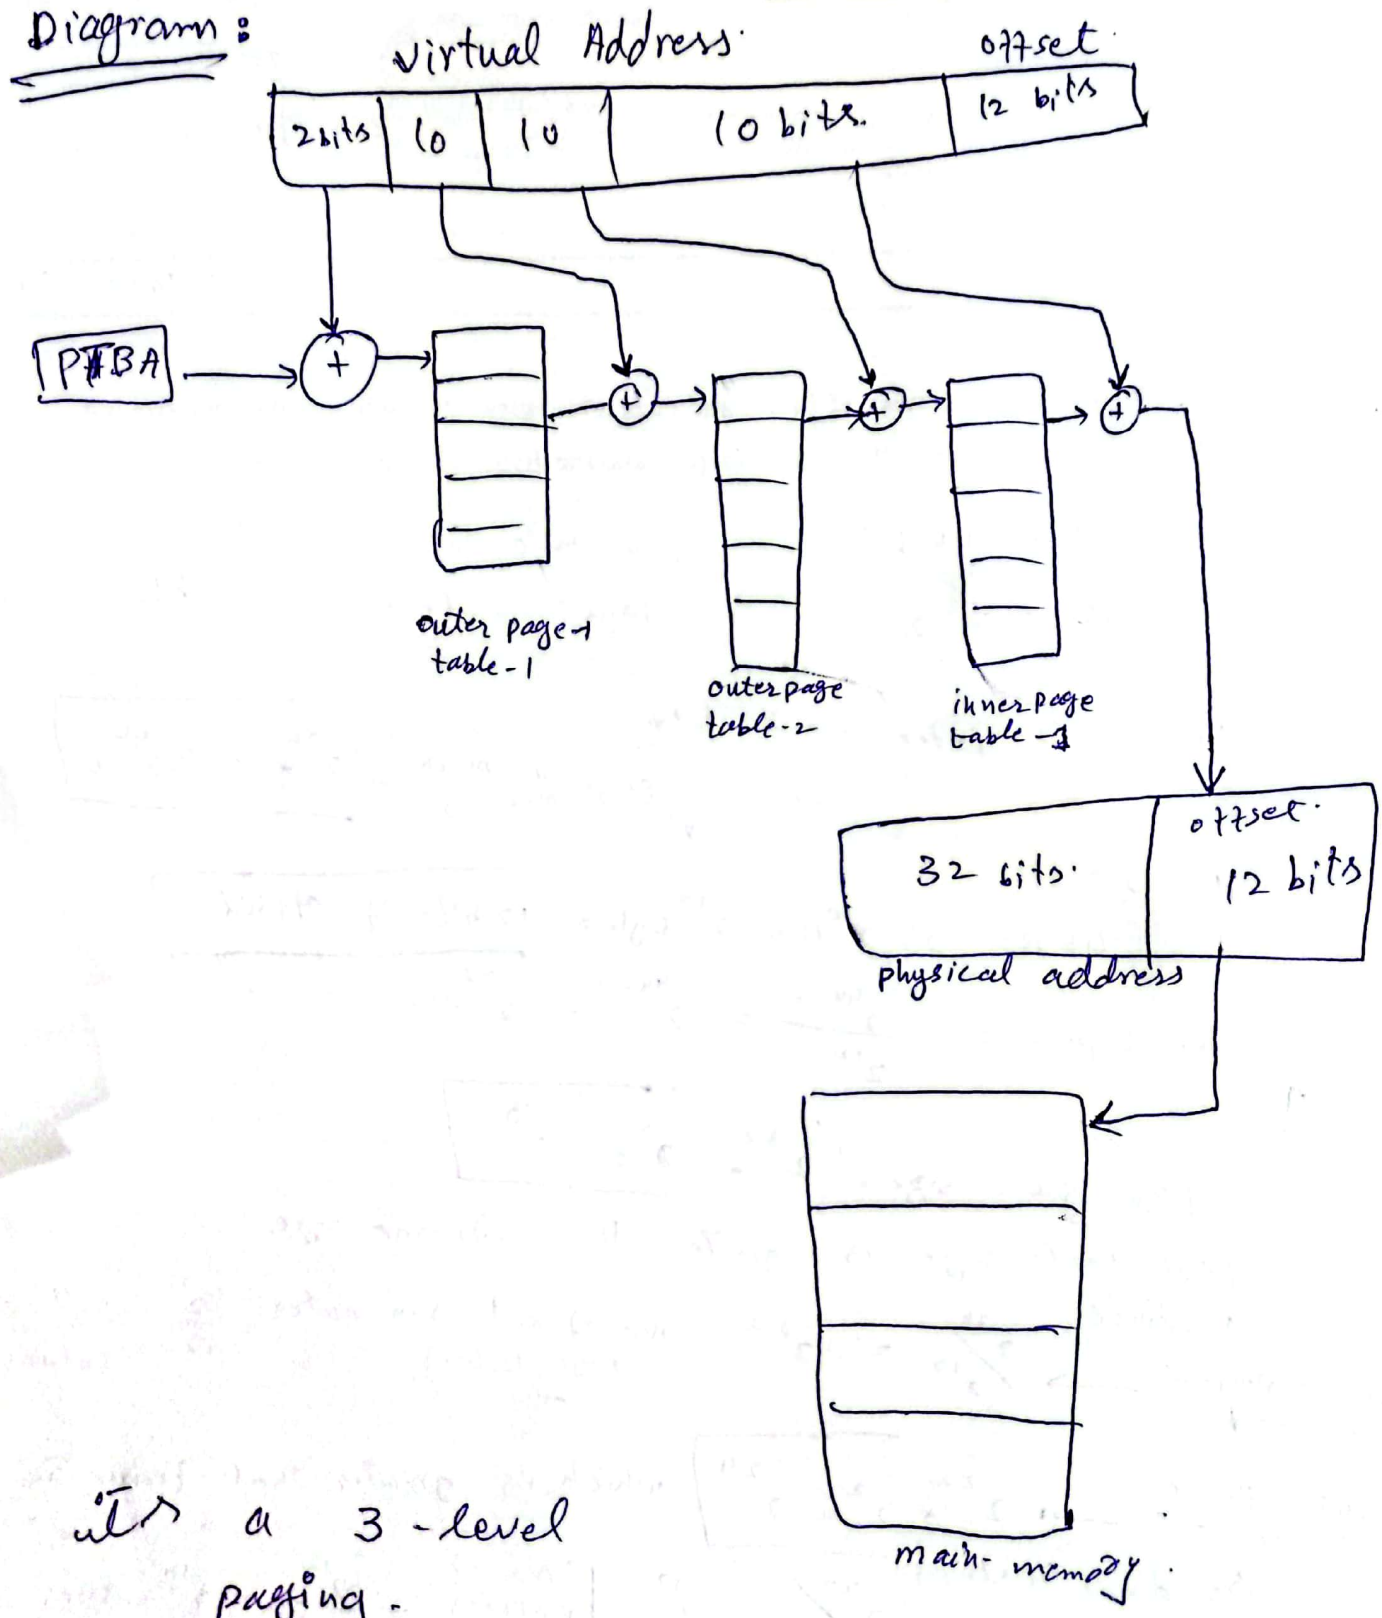 Diagram :
virtual Address
offset
2bits 10 10 10 bits. 12 bits
PTBA
+
+
+
+
outer page
table-1
outer page
table-2
inner page
table -1
offset.
32 bits. 12 bits
physical address
main-memory.
it's a 3-level
paging.